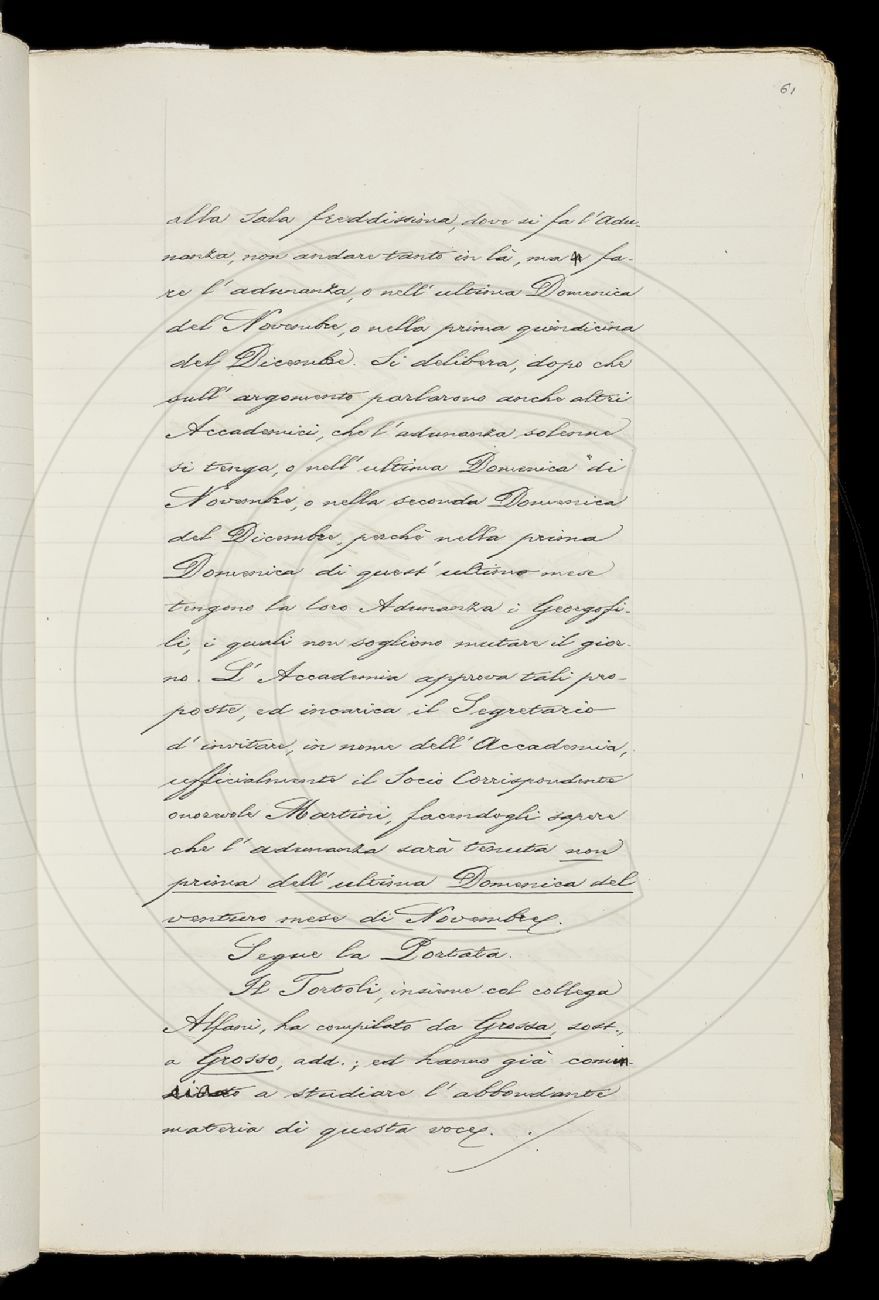 61
alla Sala freddissima, dove si fa l'Adu-
nanza, non andare tanto in là, ma fa-
re l'adunanza, o nell'ultima Domenica
del Novembre, o nella prima quindicina
del Dicembre. Si delibera, dopo che
sull'argomento parlarono anche altri
Accademici, che l'adunanza solenne
si tenga, o nell'ultima Domenica di
Novembre, o nella seconda Domenica
del Dicembre, perchè nella prima
Domenica di quest'ultimo mese
tengono la loro Adunanza i Georgofi-
li, i quali non sogliono mutare il gior-
no. L'Accademia approva tali pro-
poste, ed incarica il Segretario
d'invitare, in nome dell'Accademia,
ufficialmente il Socio Corrispondente
onorevole Martini, facendogli sapere
che l'adunanza sarà tenuta non
prima dell'ultima Domenica del
venturo mese di Novembre.
Segue la Portata.
Il Tortoli, insieme col collega
Alfani, ha compilato da Grossa, sost.,
a Grosso, add.; ed hanno già comin-
ciato a studiare l'abbondante
materia di questa voce.